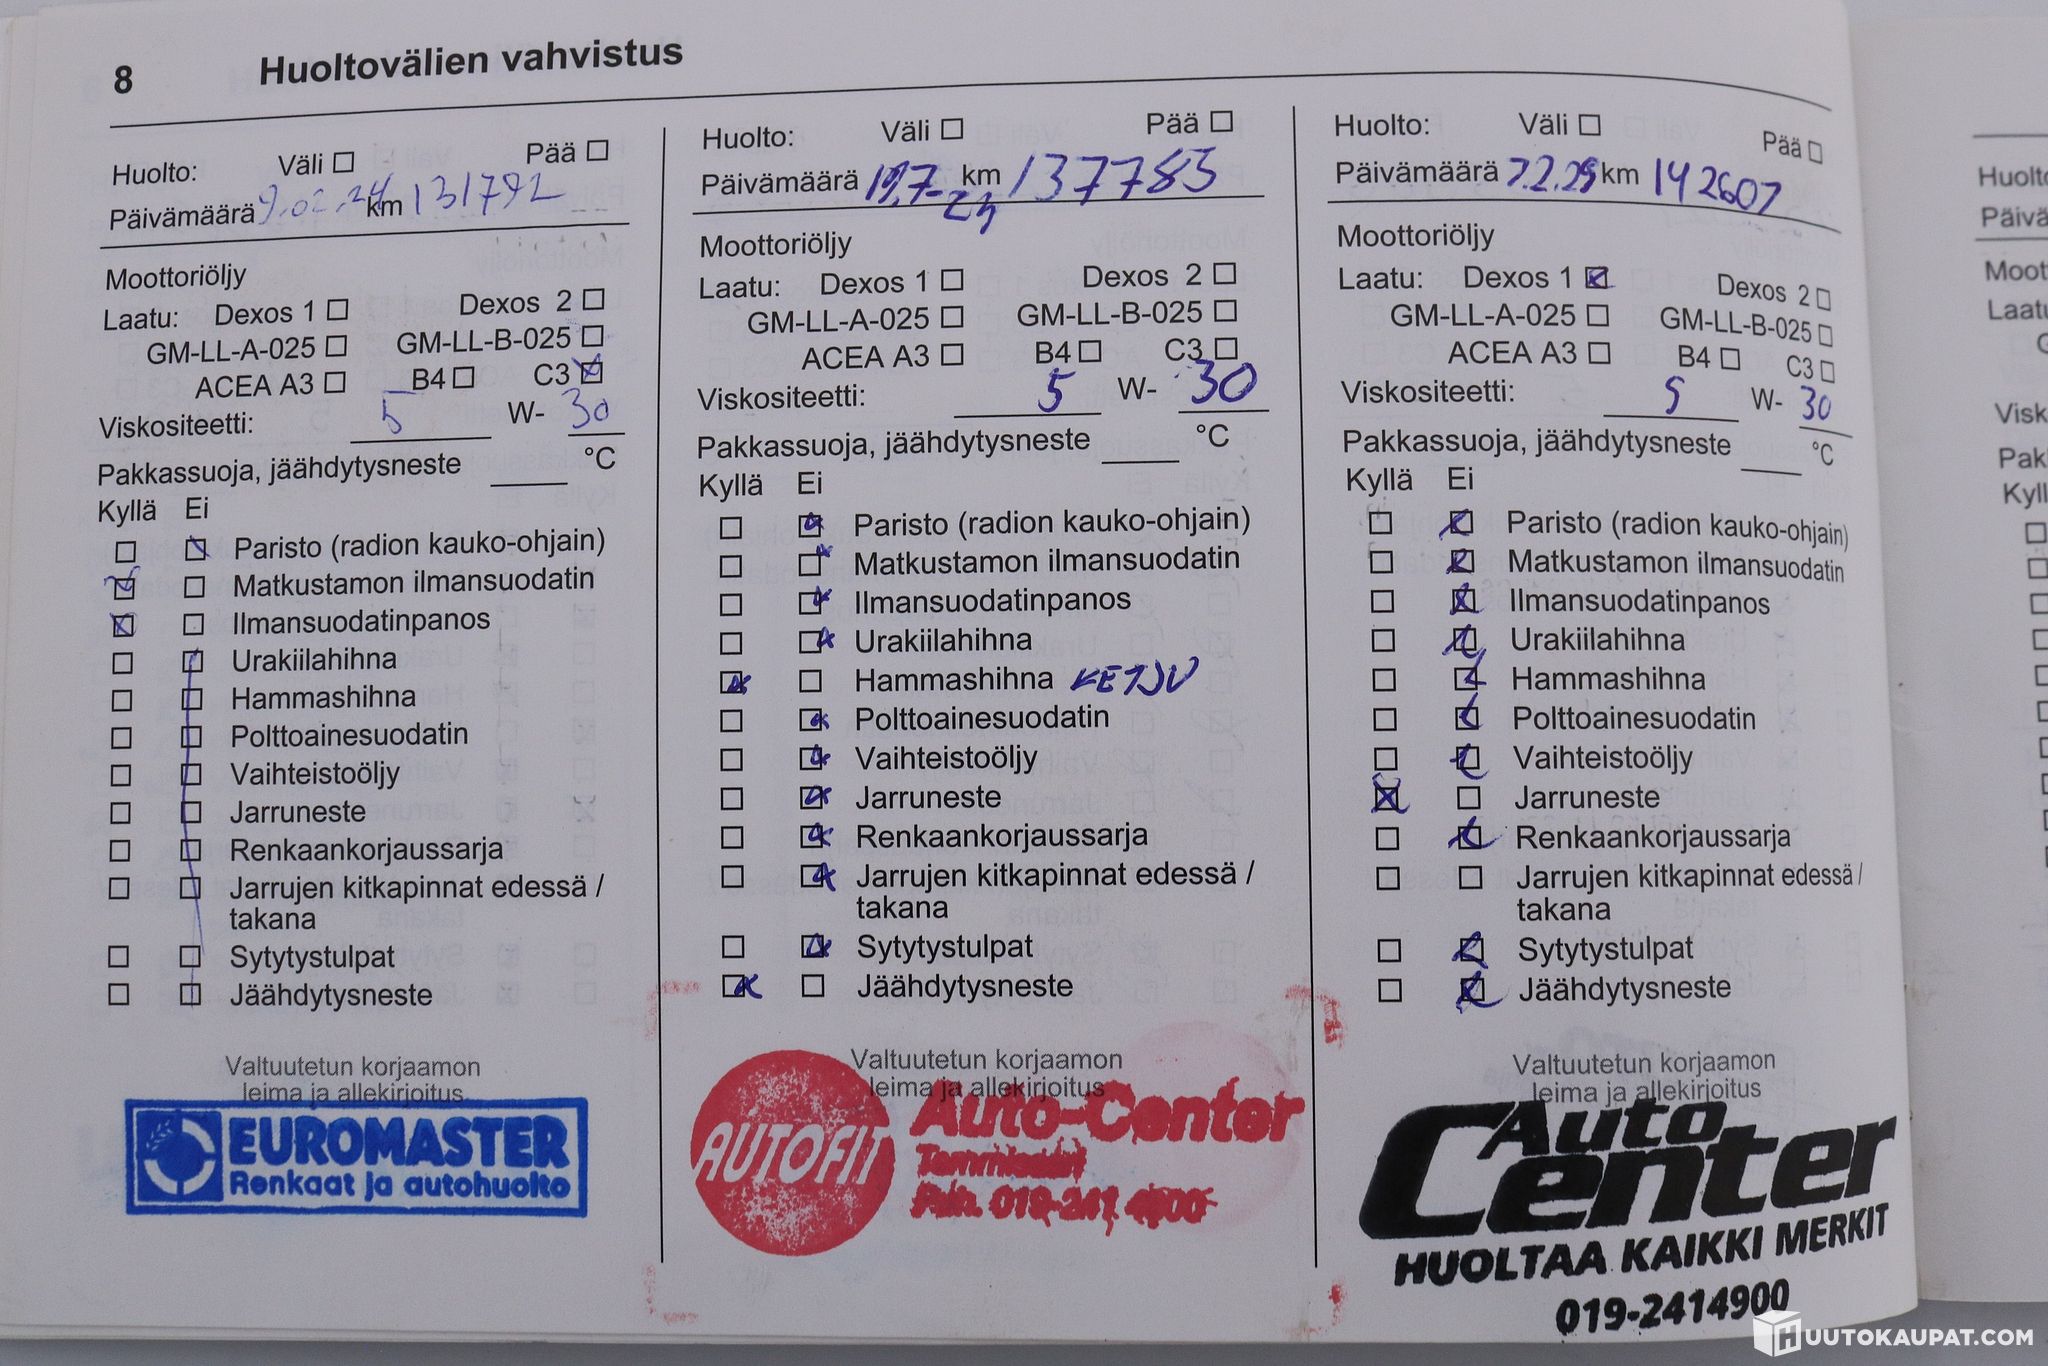 8 Huoltovälien vahvistus
Huolto: Väli Pää
Päivämäärä 9.02.24 km 131792
Moottoriöljy
Laatu: Dexos 1 Dexos 2
GM-LL-A-025 GM-LL-B-025
ACEA A3 B4 C3
Viskositeetti: 5 W- 30
Pakkassuoja, jäähdytysneste °C
Kyllä Ei
Paristo (radion kauko-ohjain)
Matkustamon ilmansuodatin
Ilmansuodatinpanos
Urakiilahihna
Hammashihna
Polttoainesuodatin
Vaihteistoöljy
Jarruneste
Renkaankorjaussarja
Jarrujen kitkapinnat edessä /
takana
Sytytystulpat
Jäähdytysneste
Valtuutetun korjaamon
leima ja allekirjoitus
EUROMASTER
Renkaat ja autohuolto
Huolto: Väli Pää
Päivämäärä 19.7-24 km 137785
Moottoriöljy
Laatu: Dexos 1 Dexos 2
GM-LL-A-025 GM-LL-B-025
ACEA A3 B4 C3
Viskositeetti: 5 W- 30
Pakkassuoja, jäähdytysneste °C
Kyllä Ei
Paristo (radion kauko-ohjain)
Matkustamon ilmansuodatin
Ilmansuodatinpanos
Urakiilahihna
Hammashihna KETJU
Polttoainesuodatin
Vaihteistoöljy
Jarruneste
Renkaankorjaussarja
Jarrujen kitkapinnat edessä /
takana
Sytytystulpat
Jäähdytysneste
Valtuutetun korjaamon
leima ja allekirjoitus
AUTOFIT
Auto-Center
Tammisaari
Puh. 019-241 4900
Huolto: Väli Pää
Päivämäärä 7.2.25 km 142607
Moottoriöljy
Laatu: Dexos 1 Dexos 2
GM-LL-A-025 GM-LL-B-025
ACEA A3 B4 C3
Viskositeetti: 5 W- 30
Pakkassuoja, jäähdytysneste °C
Kyllä Ei
Paristo (radion kauko-ohjain)
Matkustamon ilmansuodatin
Ilmansuodatinpanos
Urakiilahihna
Hammashihna
Polttoainesuodatin
Vaihteistoöljy
Jarruneste
Renkaankorjaussarja
Jarrujen kitkapinnat edessä /
takana
Sytytystulpat
Jäähdytysneste
Valtuutetun korjaamon
leima ja allekirjoitus
Auto
Center
HUOLTAA KAIKKI MERKIT
019-2414900
HUUTOKAUPAT.COM